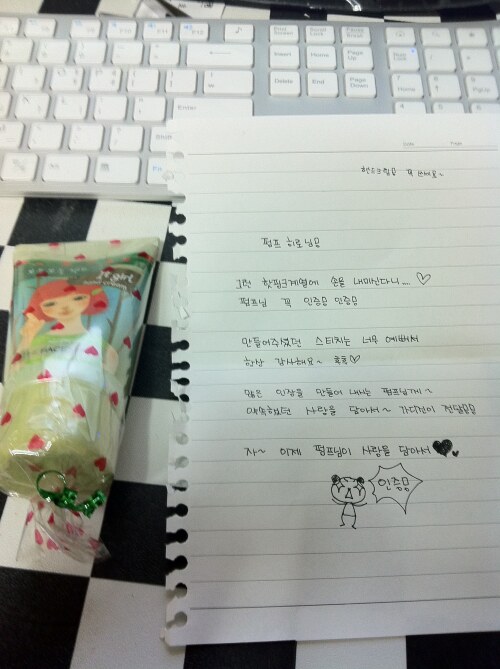 핸드크림 꼭 쓰세요~
펌프 히로님
그런 핫핑크계열에 손을 내미신다니... ♡
펌프님 꼭 인증 인증
만들어주셨던 스티치는 너무 예뻐서
항상 감사해요~ 쿡쿡♡
많은 인장을 만들어 내시는 펌프님께~
약속했던 사랑을 담아서~ 가디건이 전달
자~ 이제 펌프님이 사랑을 담아서 ♥
Scroll Lock
Insert
Home
Page Up
Delete
End
Page Down
Enter
Shift
Home
PgUp
7
8
9
4
5
6
girl